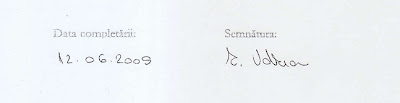 Data completării: Semnătura:
12.06.2009